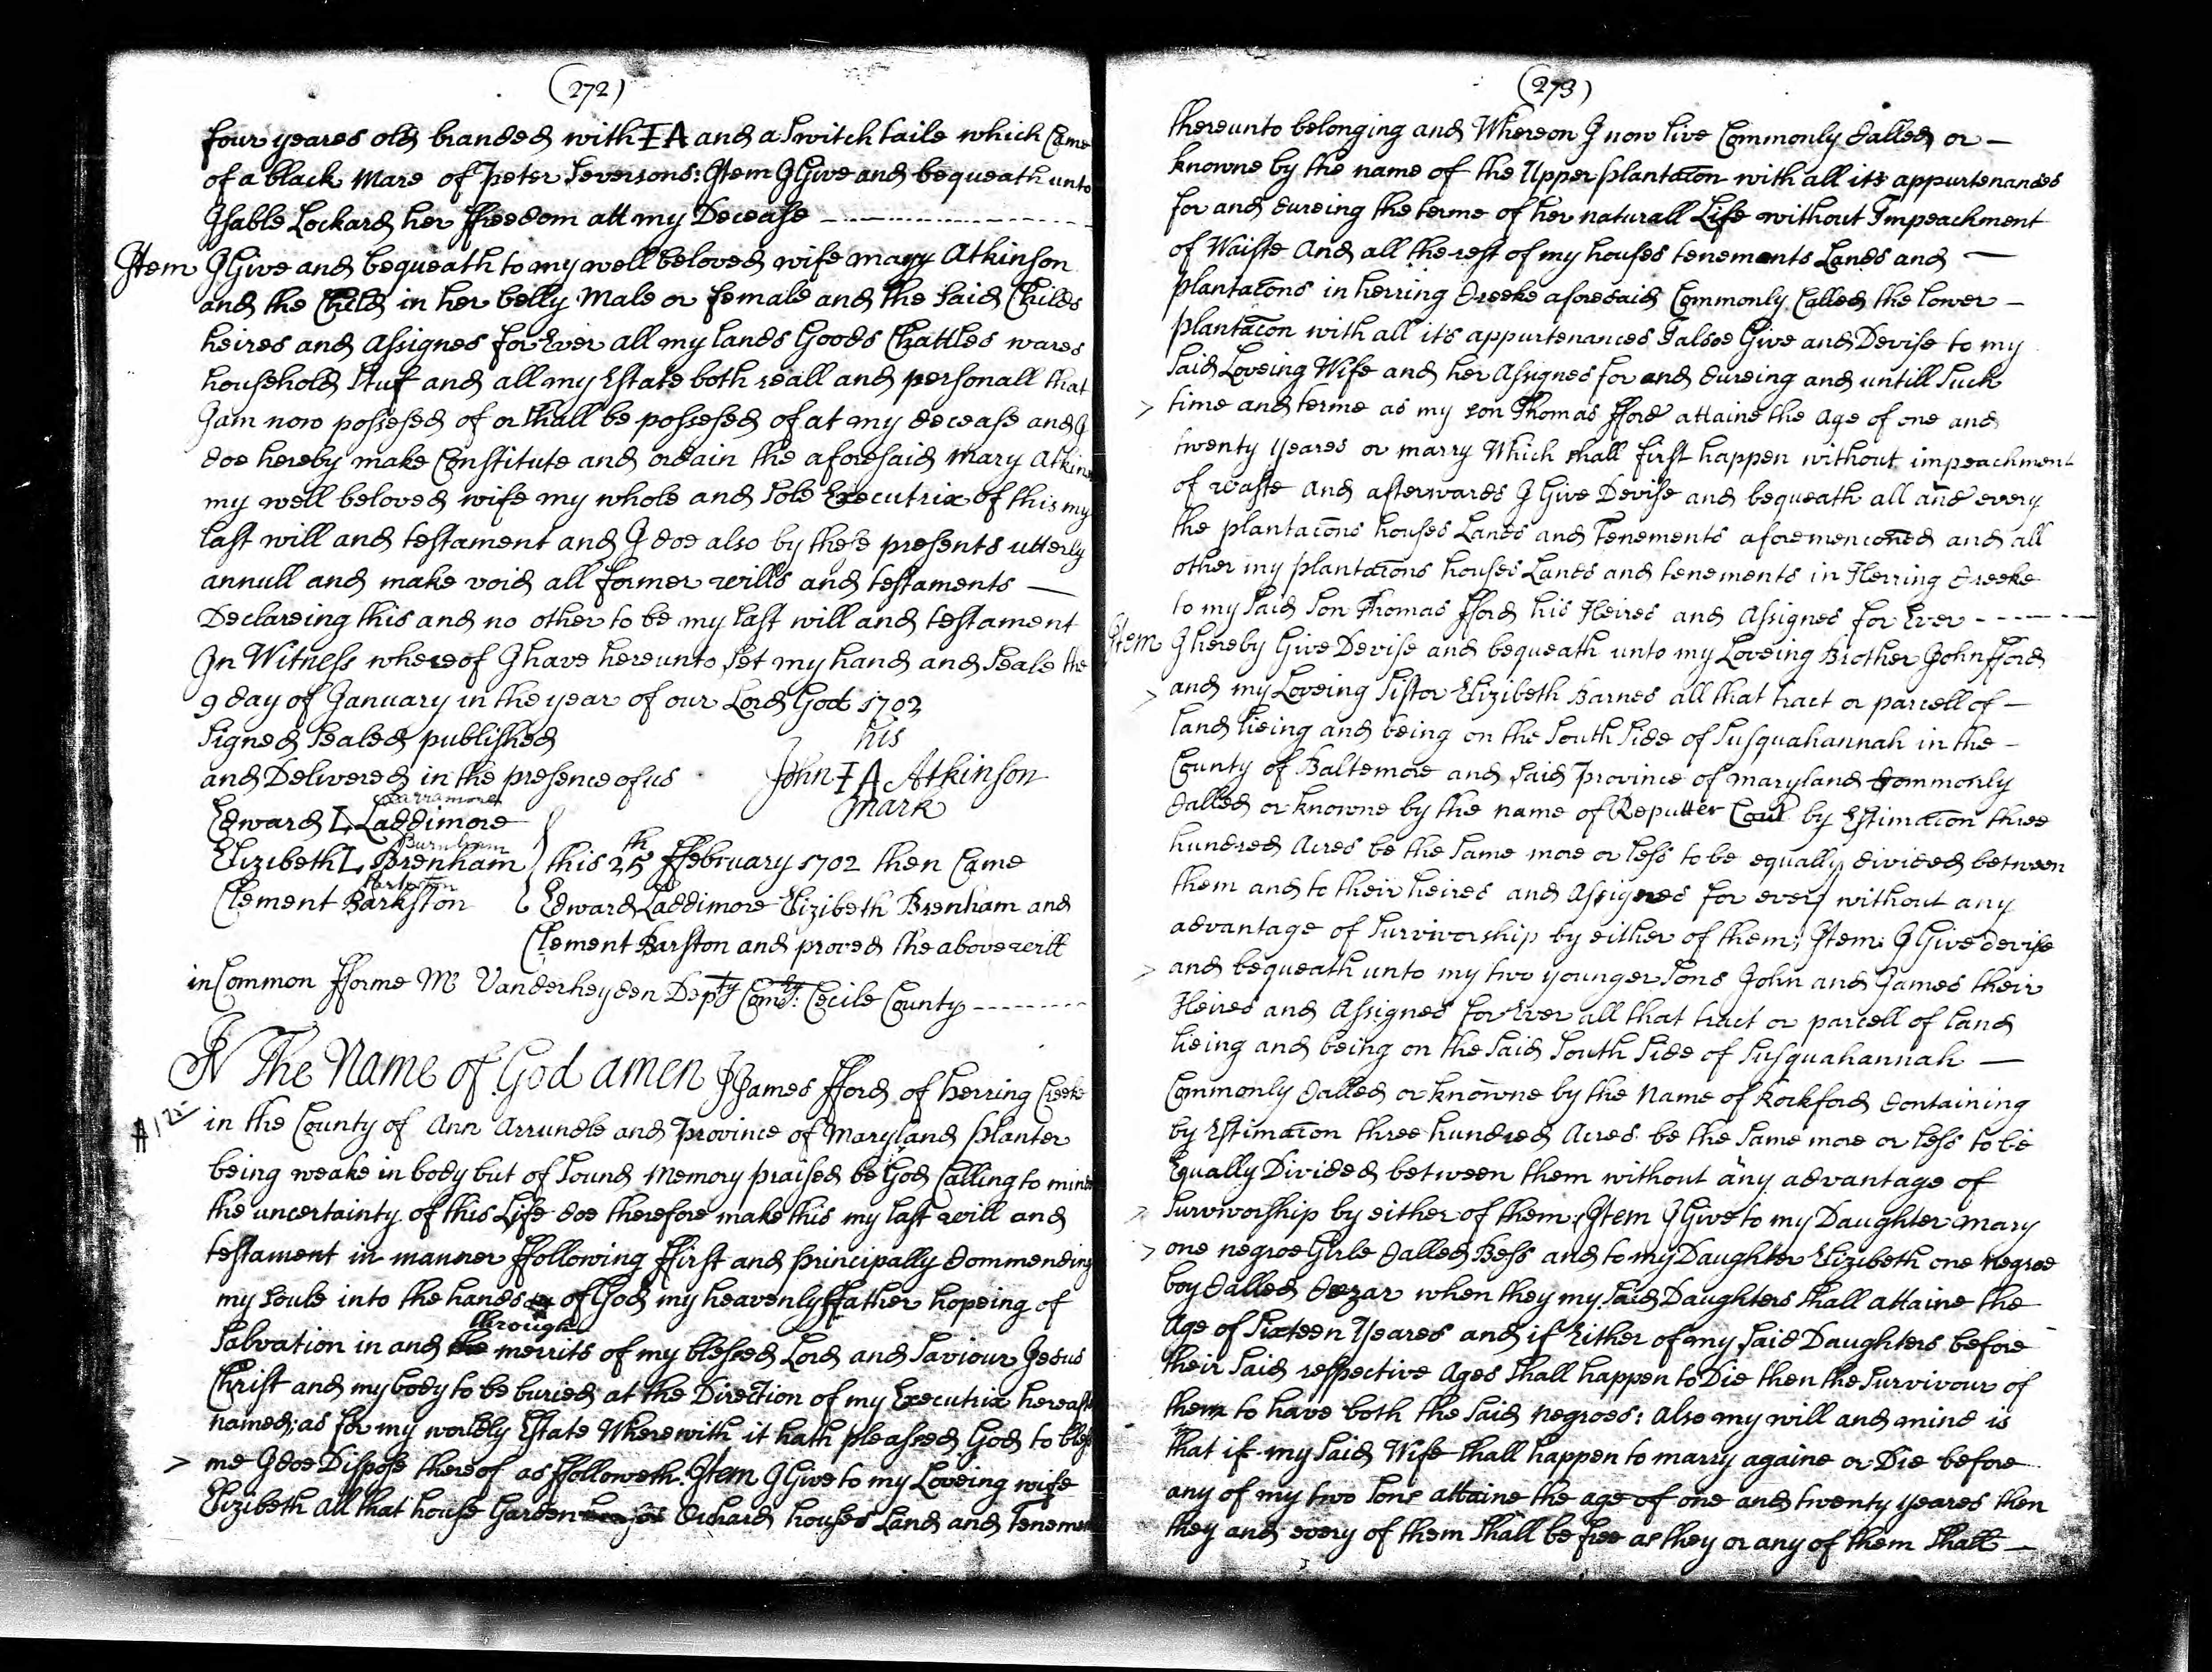 (272)
four yeares old branded with IA and a Switch taile which Came
of a black Mare of Peter Seversons: Item I Give and bequeath unto
Isable Lockard her ffreedom att my Decease
Item I Give and bequeath to my well beloved wife mary Atkinson
and the Child in her belly Male or female and the Said Childs
heires and Assignes for Ever all my lands Goods Chattles wares
household Stuf and all my Estate both reall and personall that
I am now possesed of or Shall be possesed of at my decease and I
doe hereby make Constitute and ordain the aforesaid Mary Atkins
my well beloved wife my whole and Sole Executrix of this my
last will and testament and I doe also by these presents utterly
annull and make void all former wills and testaments —
Declareing this and no other to be my last will and testament
In Witness whereof I have hereunto Set my hand and Seale the
9 day of January in the year of our Lord God 1702
Signed Sealed published his
and Delivered in the presence of us John IA Atkinson
Larramore mark
Edward L Laddimore
Burnham
Elizibeth L Brenham this 25th ffebruary 1702 then Came
Clement Barkston Edward Laddimore Elizibeth Brenham and
Clement Barston and proved the above will
in Common fforme Mr Vanderheyden Depty Comry: Cecile County
IN The Name of God amen I James fford of herring Creeke
in the County of Ann Arrundle and Province of Maryland planter
being weake in body but of Sound Memory praised be God Calling to mind
the uncertainty of this Life doe therefore make this my last will and
testament in manner ffollowing ffirst and principally Commending
my Soule into the hands of God my heavenly ffather hopeing of
through
Salvation in and the merrits of my blessed Lord and Saviour Jesus
Christ and my body to be buried at the Direction of my Executrix hereafte
named; as for my worldly Estate Wherewith it hath pleased God to bless
> me I doe Dispose thereof as ffolloweth. Item I Give to my Loveing wife
Elizibeth All that house Garden Orchard houses Land and Tenemen
(273)
thereunto belonging and Whereon I now live Commonly Called or —
knowne by the name of the Upper plantacon with all its appurtenances
for and dureing the terme of her naturall Life without Impeachment
of Waiste And all the rest of my houses tenements Lands and —
plantacons in herring Creeke aforesaid Commonly Called the lower —
plantacon with all it's appurtenances I alsoe Give and Devise to my
Said Loveing Wife and her Assignes for and dureing and untill Such
> time and terme as my son Thomas fford attaine the age of one and
twenty yeares or marry Which shall first happen without impeachment
of waste And afterwards I Give Devise and bequeath all and every
the plantacons houses Lands and Tenements aforemenconed and all
other my plantacons houses Lands and tenements in Herring Creeke
to my Said Son Thomas fford his Heires and Assignes for Ever
Item I hereby Give Devise and bequeath unto my Loveing Brother John fford
> and my Loveing Sister Elizibeth Barnes all that tract or parcell of —
land lieing and being on the South Side of Susquahannah in the —
County of Baltemore and Said Province of maryland Commonly
Called or knowne by the name of Reputter by Estimacon three
hundred Acres be the Same more or less to be equally divided between
them and to their heires and Assignes for every without any
advantage of Survivorship by either of them; Item: I Give devise
> and bequeath unto my two younger Sons John and James their
Heires and Assignes for Ever all that tract or parcell of land
lieing and being on the Said South Side of Susquahannah —
Commonly Called or knowne by the Name of Rockford Containing
by Estimacon three hundred Acres be the Same more or less to be
Equally Divided between them without any advantage of
> Survivorship by either of them: Item I Give to my Daughter Mary
> one negroe Girle Called Bess and to my Daughter Elizibeth one Negroe
boy Called Cezar when they my Said Daughters Shall attaine the
Age of Sixteen Yeares and if Either of my Said Daughters before
their Said respective Ages Shall happen to Die then the Survivour of
them to have both the Said Negroes: Also my will and mind is
that if my Said Wife Shall happen to marry againe or Die before
any of my two Sons attaine the age of one and twenty yeares then
they and every of them Shall be free as they or any of them Shall —